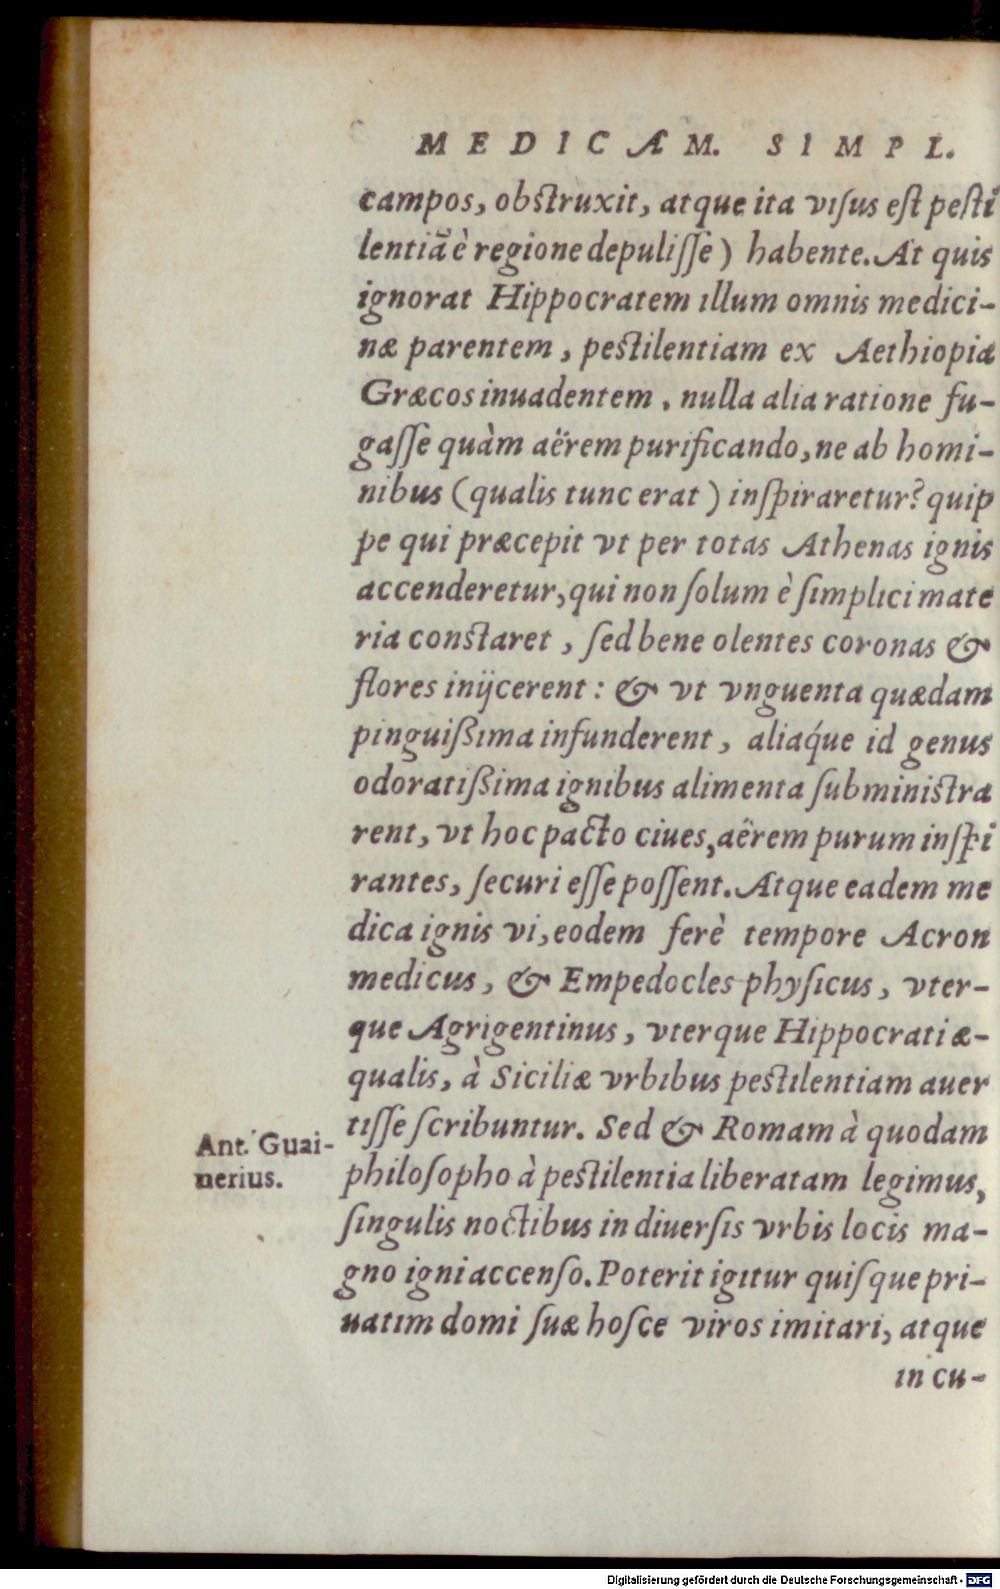 MEDICAM. SIMPL.
campos, obstruxit, atque ita visus est pesti
lentiā è regione depulisse) habente. At quis
ignorat Hippocratem illum omnis medici-
næ parentem, pestilentiam ex Aethiopia
Græcos inuadentem, nulla alia ratione fu-
gasse quàm aërem purificando, ne ab homi-
nibus (qualis tunc erat) inspiraretur? quip
pe qui præcepit vt per totas Athenas ignis
accenderetur, qui non solum è simplici mate
ria constaret, sed bene olentes coronas &
flores inijcerent: & vt vnguenta quædam
pinguißima infunderent, aliaq́ue id genus
odoratißima ignibus alimenta subministra
rent, vt hoc pacto ciues, aërem purum inspi
rantes, securi esse possent. Atque eadem me
dica ignis vi, eodem ferè tempore Acron
medicus, & Empedocles physicus, vter-
que Agrigentinus, vterque Hippocrati æ-
qualis, à Siciliæ vrbibus pestilentiam auer
tisse scribuntur. Sed & Romam à quodam
Ant. Guai-
nerius.
philosopho à pestilentia liberatam legimus,
singulis noctibus in diuersis vrbis locis ma-
gno igni accenso. Poterit igitur quisque pri-
uatim domi suæ hosce viros imitari, atque
in cu-
Digitalisierung gefördert durch die Deutsche Forschungsgemeinschaft - DFG